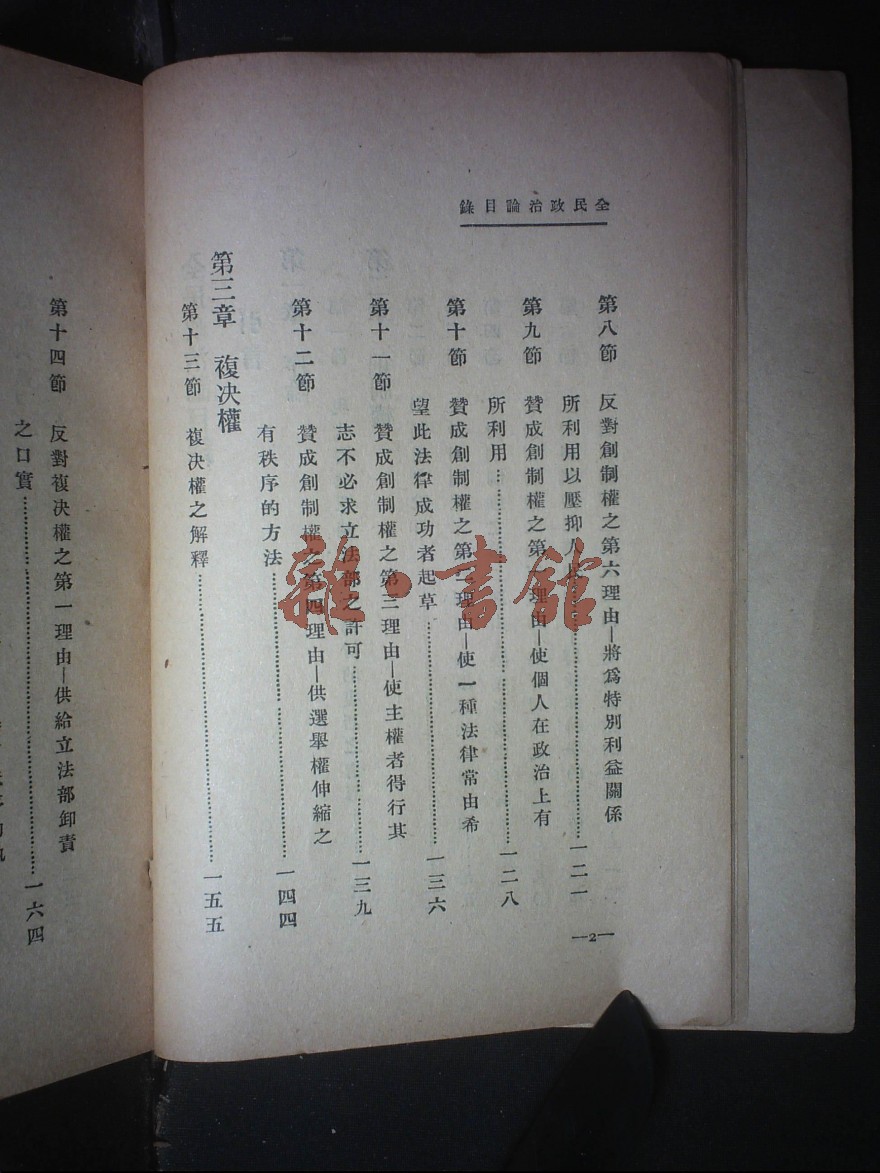 全民政治論目錄
第八節　反對創制權之第六理由—將爲特別利益關係
所利用以壓抑人民…………一二一
第九節　贊成創制權之第一理由—使個人在政治上有
所利用…………一二八
第十節　贊成創制權之第二理由—使一種法律常由希
望此法律成功者起草…………一三六
第十一節　贊成創制權之第三理由—使主權者得行其
志不必求立法部之許可…………一三九
第十二節　贊成創制權之第四理由—供選舉權伸縮之
有秩序的方法…………一四四
第三章　複决權
第十三節　複决權之解釋…………一五五
—2—
第十四節　反對複决權之第一理由—供給立法部卸責
之口實…………一六四
雜·書館